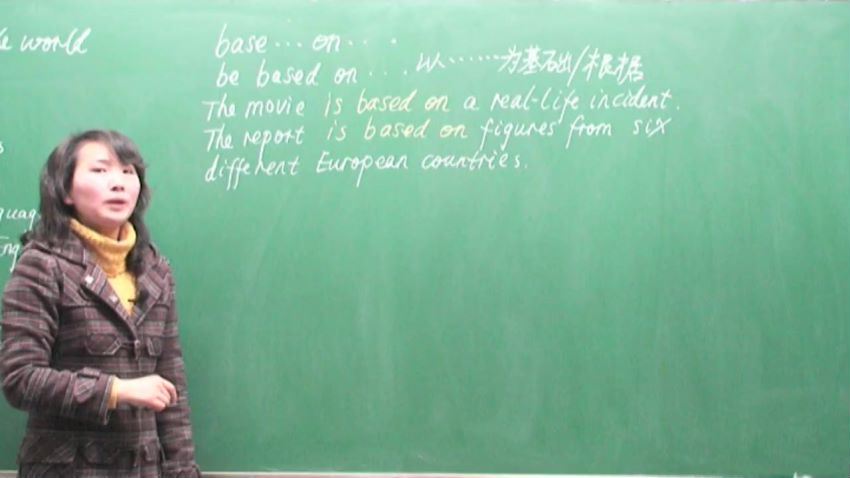 world
base ... on ...
be based on ... 以 ...... 为基础/根据
The movie is based on a real-life incident.
The report is based on figures from six
different European countries.